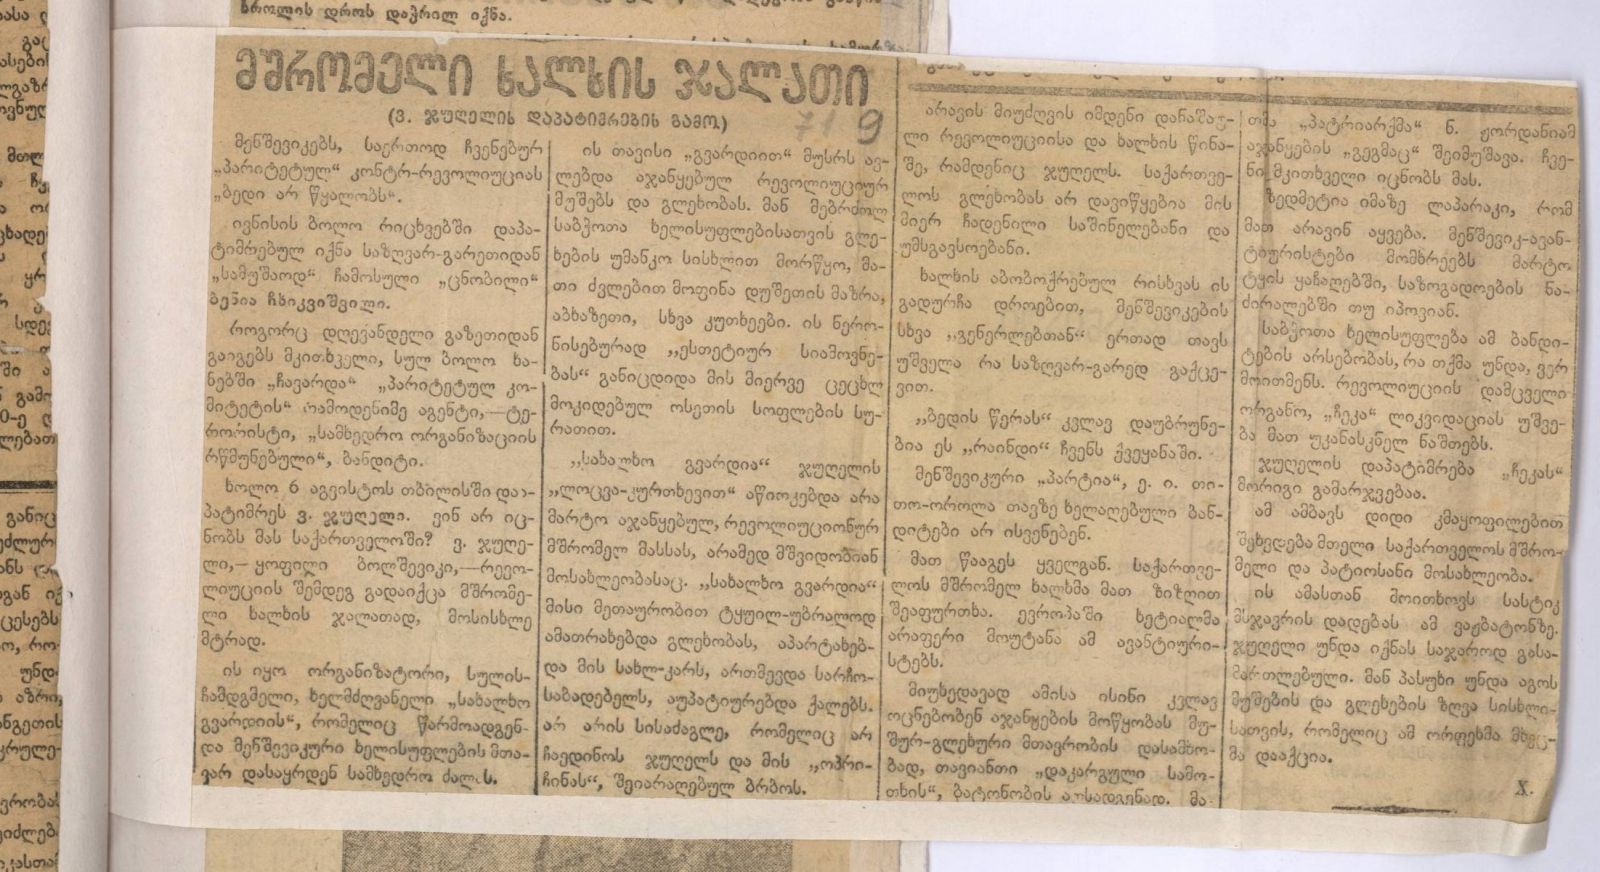 მშრომელი ხალხის ჯალათი
(ვ. ჯუღელის დაპატიმრების გამო)
719
მენშევიკებს, საერთოდ ჩვენებურ
„პარიტეტულ“ კონტრ-რევოლუციას
„ბედი არ წყალობს“.
ივნისის ბოლო რიცხვებში დაპა-
ტიმრებულ იქნა საზღვარ-გარეთიდან
„სამუშაოდ“ ჩამოსული „ცნობილი“
ბენია ჩხიკვიშვილი.
როგორც დღევანდელი გაზეთიდან
გაიგებს მკითხველი, სულ ბოლო ხა-
ნებში „ჩავარდა“ „პარიტეტულ კო-
მიტეტის“ რამოდენიმე აგენტი,—ტე-
რორისტი, „სამხედრო ორგანიზაციის
რწმუნებული“, ბანდიტი.
ხოლო 6 აგვისტოს თბილისში და-
პატიმრეს ვ. ჯუღელი. ვინ არ იც-
ნობს მას საქართველოში? ვ. ჯუღე-
ლი,—ყოფილი ბოლშევიკი,—რევო-
ლიუციის შემდეგ გადაიქცა მშრომე-
ლი ხალხის ჯალათად, მოსისხლე
მტრად.
ის იყო ორგანიზატორი, სულის-
ჩამდგმელი, ხელმძღვანელი „სახალხო
გვარდიის“, რომელიც წარმოადგენ-
და მენშევიკური ხელისუფლების მთა-
ვარ დასაყრდენ სამხედრო ძალას.
ის თავისი „გვარდიით“ მუსრს ავ-
ლებდა აჯანყებულ რევოლიუციურ
მუშებს და გლეხობას. მან მებრძოლ
საბჭოთა ხელისუფლებისათვის გლე-
ხების უმანკო სისხლით მორწყო, მა-
თი ძვლებით მოფინა დუშეთის მაზრა,
აბხაზეთი, სხვა კუთხეები. ის ნერო-
ნისებურად „ესთეტიურ სიამოვნე-
ბას“ განიცდიდა მის მიერვე ცეცხლ
მოკიდებულ ოსეთის სოფლების სუ-
რათით.
„სახალხო გვარდია“ ჯუღელის
„ლოცვა-კურთხევით“ აწიოკებდა არა
მარტო აჯანყებულ, რევოლიუციონურ
მშრომელ მასსას, არამედ მშვიდობიან
მოსახლეობასაც. „სახალხო გვარდია“
მისი მეთაურობით ტყუილ-უბრალოდ
ამათრახებდა გლეხობას, აპარტახებ-
და მის სახლ-კარს, ართმევდა სარჩო-
საბადებელს, აუპატიურებდა ქალებს.
არ არის სისაძაგლე, რომელიც არ
ჩაედინოს ჯუღელს და მის „ოპრი-
ჩინას“, შეიარაღებულ ბრბოს.
არავის მიუძღვის იმდენი დანაშაუ-
ლი რევოლიუციისა და ხალხის წინა-
შე, რამდენიც ჯუღელს. საქართვე-
ლოს გლეხობას არ დავიწყებია მის
მიერ ჩადენილი საშინელებანი და
უმსგავსოებანი.
ხალხის აბობოქრებულ რისხვას ის
გადურჩა დროებით, მენშევიკების
სხვა „გენერლებთან“ ერთად თავს
უშველა რა საზღვარ-გარედ გაქცე-
ვით.
„ბედის წერას“ კვლავ დაუბრუნე-
ბია ეს „რაინდი“ ჩვენს ქვეყანაში.
მენშევიკური „პარტია“, ე. ი. თი-
თო-ოროლა თავზე ხელაღებული ბან-
დიტები არ ისვენებენ.
მათ წააგეს ყველგან. საქართვე-
ლოს მშრომელ ხალხმა მათ ზიზღით
შეაფურთხა. ევროპაში ხეტიალმა
არაფერი მოუტანა ამ ავანტიური-
სტებს.
მიუხედავად ამისა ისინი კვლავ
ოცნებობენ აჯანყების მოწყობას მუ-
შურ-გლეხური მთავრობის დასამხო-
ბად, თავიანთი „დაკარგული სამო-
თხის“, ბატონობის აღსადგენად. მა-
თმა „პატრიარქმა“ ნ. ჟორდანიამ
აჯანყების „გეგმაც“ შეიმუშავა. ჩვე-
ნი მკითხველი იცნობს მას.
ზედმეტია იმაზე ლაპარაკი, რომ
მათ არავინ აყვება. მენშევიკ-ავან-
ტიურისტები მომხრეებს მარტო
ტყის ყაჩაღებში, საზოგადოების ნა-
ძირალებში თუ იპოვიან.
საბჭოთა ხელისუფლება ამ ბანდი-
ტების არსებობას, რა თქმა უნდა, ვერ
მოითმენს. რევოლიუციის დამცველი
ორგანო, „ჩეკა“ ლიკვიდაციას უშვე-
ბა მათ უკანასკნელ ნაშთებს.
ჯუღელის დაპატიმრება „ჩეკას“
მორიგი გამარჯვებაა.
ამ ამბავს დიდი კმაყოფილებით
შეხვდება მთელი საქართველოს მშრო-
მელი და პატიოსანი მოსახლეობა.
ის ამასთან მოითხოვს სასტიკ
მსჯავრის დადებას ამ ვაჟბატონზე.
ჯუღელი უნდა იქნას საჯაროდ გასა-
მართლებული. მან პასუხი უნდა აგოს
მუშების და გლეხების ზღვა სისხლი-
სათვის, რომელიც ამ ორფეხმა მხეც-
მა დააქცია.
X.